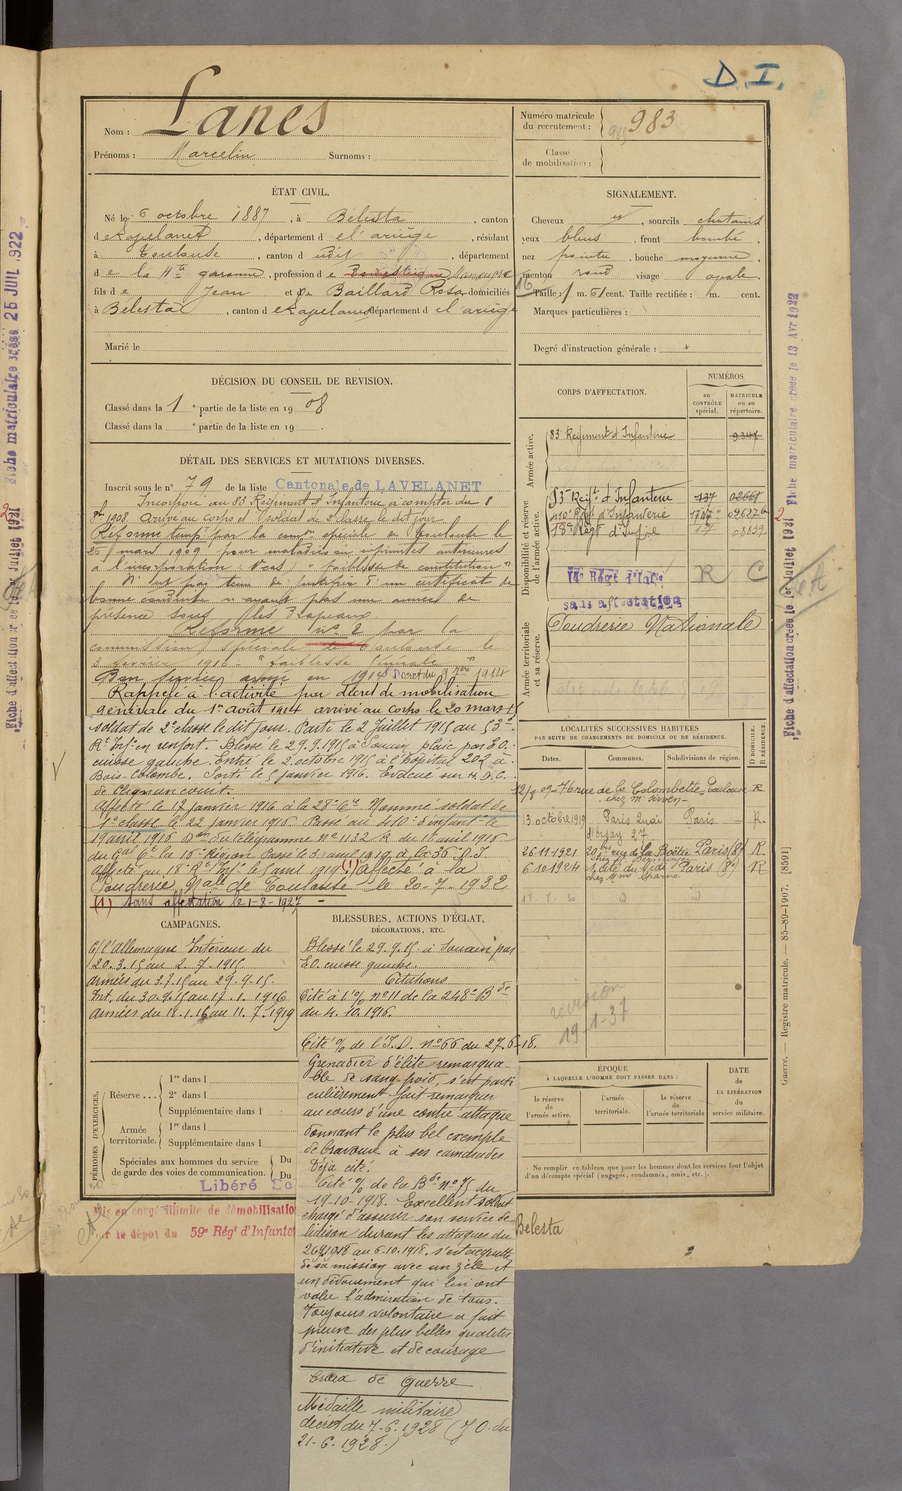 D. I.
Nom : Lanes
Prénoms : Marcelin Surnoms :
Numéro matricule
du recrutement : 983
Classe
de mobilisation :
ÉTAT CIVIL.
Né le 6 octobre 1887, à Bélesta, canton
d, département d el'ariège, résidant
à Toulouse, canton d, département
d e la Hte garonne, profession d e Domestique
fils d e Jean et de Baillard Rosa domiciliés
à Bélesta, canton d département d el'ariège
Marié le
SIGNALEMENT.
Cheveux sourcils chatains
yeux bleus, front bombé,
nez pointu, bouche moyenne,
menton rond visage ovale
Taille 1 m. 61 cent. Taille rectifiée : m. cent.
Marques particulières :
Degré d'instruction générale :
DÉCISION DU CONSEIL DE REVISION.
Classé dans la 1e partie de la liste en 1908
Classé dans la e partie de la liste en 19 .
DÉTAIL DES SERVICES ET MUTATIONS DIVERSES.
Inscrit sous le n° 79 de la liste Cantonale de LAVELANET
Incorporé au 83e Régiment d'Infanterie à compter du 8
8bre 1908. Arrivé au corps et soldat de 2e classe le dit jour.
Réformé tempre par la comon spéciale de Toulouse le
26 mars 1909 pour maladies ou infirmités antérieures
à l'incorporation "faiblesse de constitution"
N'eut pas tenu de justifier d'un certificat de
bonne conduite n'ayant pas une année de
présence sous les Drapeaux
Réformé n° 2 par la
commission spéciale de Toulouse le
3 février 1916 "faiblesse générale"
Bon service armé en 1914 Décret du 9 7bre 1914
Rappelé à l'activité par décret de mobilisation
générale du 1er août 1914 arrivé au corps le 20 mars 15
soldat de 2e classe le dit jour. Parti le 2 Juillet 1915 au 53e
Rt Infie en renfort. Blessé le 29.9.1915 à Souain plaie par E.O.
cuisse gauche. Entré le 2 octobre 1915 à l'hôpital 202 à
Bois-Colombe. Sorti le 5 janvier 1916. Evacué sur H.D.C.
de Clignancourt.
Affecté le 17 janvier 1916 à la 28e Cie Nommé soldat de
1e classe le 22 janvier 1916 Passé au 410e d'infanie le
19 avril 1916 Don du télégramme N° 1132 R du 16 avril 1916
du Gal Ct la 10e Région Passé le 5 avril 1919 à la 36e D.I.
Affecté au 18e Rt Infie le 5 avril 1919 (1) Affecté à la
Poudrerie Nale de Toulouse le 20-7-1932
(1) Sans affectation le 1-8-1927
CORPS D'AFFECTATION.
NUMÉROS
au
CONTRÔLE
spécial.
MATRICULE
ou au
répertoire.
Armée active.
83e Régiment d'Infanterie 9347
Disponibilité et réserve
de l'armée active.
53e Regt d'Infanterie 737 02661
410e Regt d'Infanterie
18e Regt d'Infie
14e Régt d'Infie R C
sans affectation
Armée territoriale
et sa réserve.
Poudrerie Nationale
LOCALITÉS SUCCESSIVES HABITÉES
PAR SUITE DE CHANGEMENTS DE DOMICILE OU DE RÉSIDENCE.
Dates. Communes. Subdivisions de région. D DOMICILE. R RÉSIDENCE.
12/9 09 76 rue de la Colombette Toulouse R
chez Mr
13 octobre 1919 Paris Quai Paris R.
d'Orsay 27
26-11-1921 20bis rue de la Boétie Paris (8e) R
6-10-1924 Paris (8e) R
revision
19-1-37
CAMPAGNES.
C/ l'Allemagne Intérieur du
20.3.15 au 2.7.1915.
Armées du 3.7.15 au 29.9.15.
Int. du 30.9.15 au 17.1.1916
Armées du 18.1.16 au 11.7.1919
BLESSURES, ACTIONS D'ÉCLAT,
DÉCORATIONS, ETC.
Blessé le 29.9.15 à Souain par
E.O. cuisse gauche.
Citations
Cité à l'O/ n° 11 de la 248e Bde
du 4.10.1916.
Cité O/ de l'I.D. n° 66 du 27.6-18.
Grenadier d'élite remarqua-
ble de sang froid, s'est parti
culièrement fait remarquer
au cours d'une contre attaque
donnant le plus bel exemple
de bravoure à ses camarades
Déjà cité.
Cité O/ de la Bde n° 75 du
19-10-1918. Excellent soldat
chargé d'assurer son service de
liaison durant les attaques du
26.9.1918 au 6.10.1918. s'est acquitté
de sa mission avec un zèle et
un dévouement qui lui ont
valu l'admiration de tous.
Toujours volontaire a fait
preuve des plus belles qualités
d'initiative et de courage
Croix de guerre
Médaille militaire
décret du 7-6-1928 (J O. du
21-6-1928.)
PÉRIODES D'EXERCICES.
Réserve . . .
1re dans l
2e dans l
Supplémentaire dans l
Armée
territoriale.
1re dans l
Supplémentaire dans l
Spéciales aux hommes du service
de garde des voies de communication.
Du
Du
Libéré
Mis en congé illimité de démobilisation
par le dépôt du 59e Régt d'Infanterie
ÉPOQUE
À LAQUELLE L'HOMME DOIT PASSER DANS :
la réserve
de
l'armée active.
l'armée
territoriale.
la réserve
de
l'armée territoriale
DATE
de
LA LIBÉRATION
du
service militaire.
Ne remplir ce tableau que pour les hommes dont les services font l'objet
d'un décompte spécial (engagés, condamnés, omis, etc.).
Bélesta
Guerre. — Registre matricule. — 85-89-1907. [8591]
Fiche matriculaire créée le 13 AVR 1922
Fiche d'affectation créée le 1er Juillet 1921
Fiche matriculaire créée 25 JUIL 1922
Fiche d'affectation créée le 1er Juillet 1921